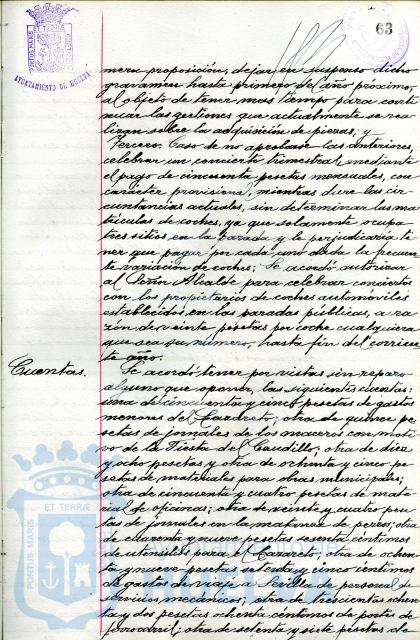 63
AYUNTAMIENTO DE HUELVA
mera proposición, dejar en suspenso dicho
gravamen hasta primero del año próximo,
al objeto de tener mas tiempo para conti
nuar las gestiones que actualmente se rea
lizan sobre la adquisición de piezas; y
Tercero. Caso de no aprobarse las anteriores,
celebrar un concierto trimestral, mediante
el pago de cincuenta pesetas mensuales, con
carácter provisional, mientras dure las cir-
cunstancias actuales, sin determinar las ma
trículas de coches, ya que solamente ocupa
tres sitios en la parada y le perjudicaría te
ner que pagar por cada uno dada la frecuen
te variación de coches; Se acordó autorizar
al Señor Alcalde para celebrar conciertos
con los propietarios de coches automóviles
establecidos en las paradas públicas, a ra
zón de veinte pesetas por coche cualquiera
que sea su número, hasta fin del corrien
te año.
Cuentas.
Se acordó tener por vistas sin reparo
alguno que oponer, las siguientes cuentas:
una de cincuenta y cinco pesetas de gastos
menores del Lazareto; otra de quince pe
setas de jornales de los maceros con moti
vo de la Fiesta del Caudillo; otra de diez
y ocho pesetas y otra de ochenta y cinco pe
setas de materiales para obras municipales;
otra de cincuenta y cuatro pesetas de mate
rial de oficinas; otra de veinte y cuatro pese
tas de jornales en la matanza de perros; otra
de cuarenta y nueve pesetas sesenta céntimos
de utensilios para el Lazareto; otra de ochen
ta y nueve pesetas setenta y cinco céntimos
de gastos de viaje a Sevilla de personal de
servicio mecánico; otra de trescientas ochen
ta y dos pesetas ochenta céntimos de portes de
ferrocarril; otra de setenta y siete pesetas de
PORTUS MARIS
ET TERRÆ